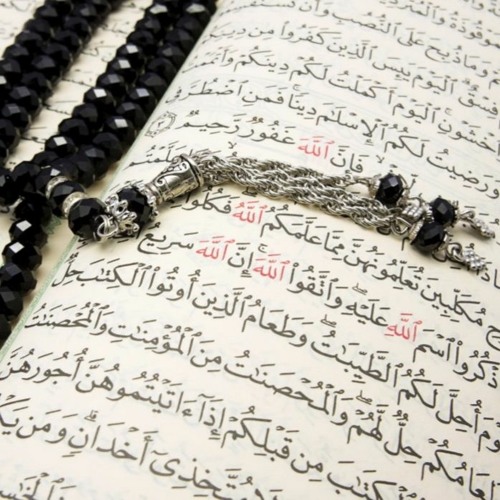 وَمَا ذُبِحَ عَلَى ٱلنُّصُبِ وَأَن
فِسْقٌ ٱلْيَوْمَ يَئِسَ ٱلَّذِينَ كَفَرُوا۟ مِن
وَٱخْشَوْنِ ٱلْيَوْمَ أَكْمَلْتُ لَكُمْ دِينَكُمْ
وَرَضِيتُ لَكُمُ ٱلْإِسْلَٰمَ دِينًا فَمَنِ ٱضْطُرَّ
فَإِنَّ ٱللَّهَ غَفُورٌ رَّحِيمٌ
مُكَلِّبِينَ تُعَلِّمُونَهُنَّ مِمَّا عَلَّمَكُمُ ٱللَّهُ فَكُلُوا۟
ٱذْكُرُوا۟ ٱسْمَ ٱللَّهِ عَلَيْهِ وَٱتَّقُوا۟ ٱللَّهَ إِنَّ ٱللَّهَ سَرِيعُ
أُحِلَّ لَكُمُ ٱلطَّيِّبَٰتُ وَطَعَامُ ٱلَّذِينَ أُوتُوا۟ ٱلْكِتَٰبَ حِلٌّ
حِلٌّ لَّهُمْ وَٱلْمُحْصَنَٰتُ مِنَ ٱلْمُؤْمِنَٰتِ وَٱلْمُحْصَنَٰتُ
مِن قَبْلِكُمْ إِذَآ ءَاتَيْتُمُوهُنَّ أُجُورَهُنَّ
أَخْدَانٍ وَمَن